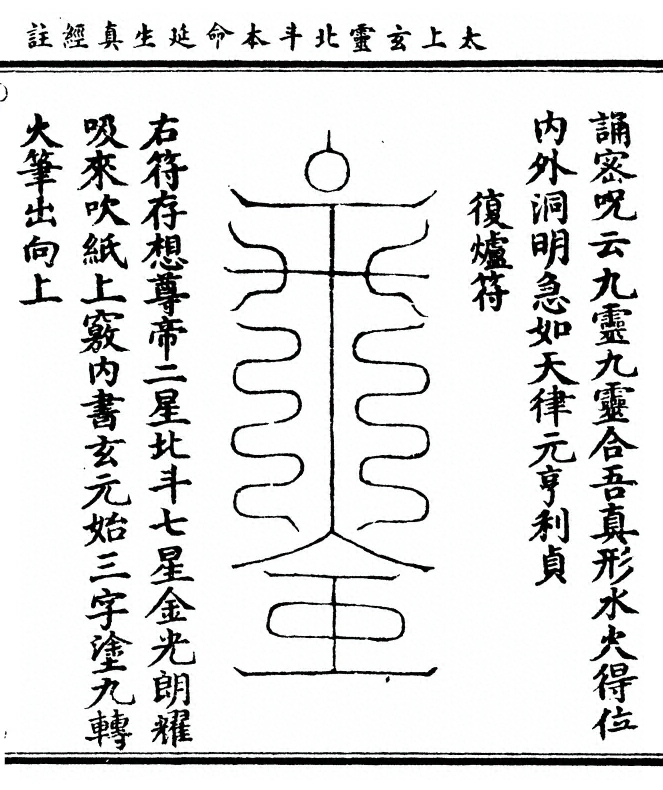 太上玄靈北斗本命延生真經註
誦密呪云九靈九靈合吾真形水火得位
内外洞明急如天律元亨利貞
復爐符
右符存想尊帝二星北斗七星金光朗耀
吸來吹紙上竅内書玄元始三字塗九轉
火筆出向上